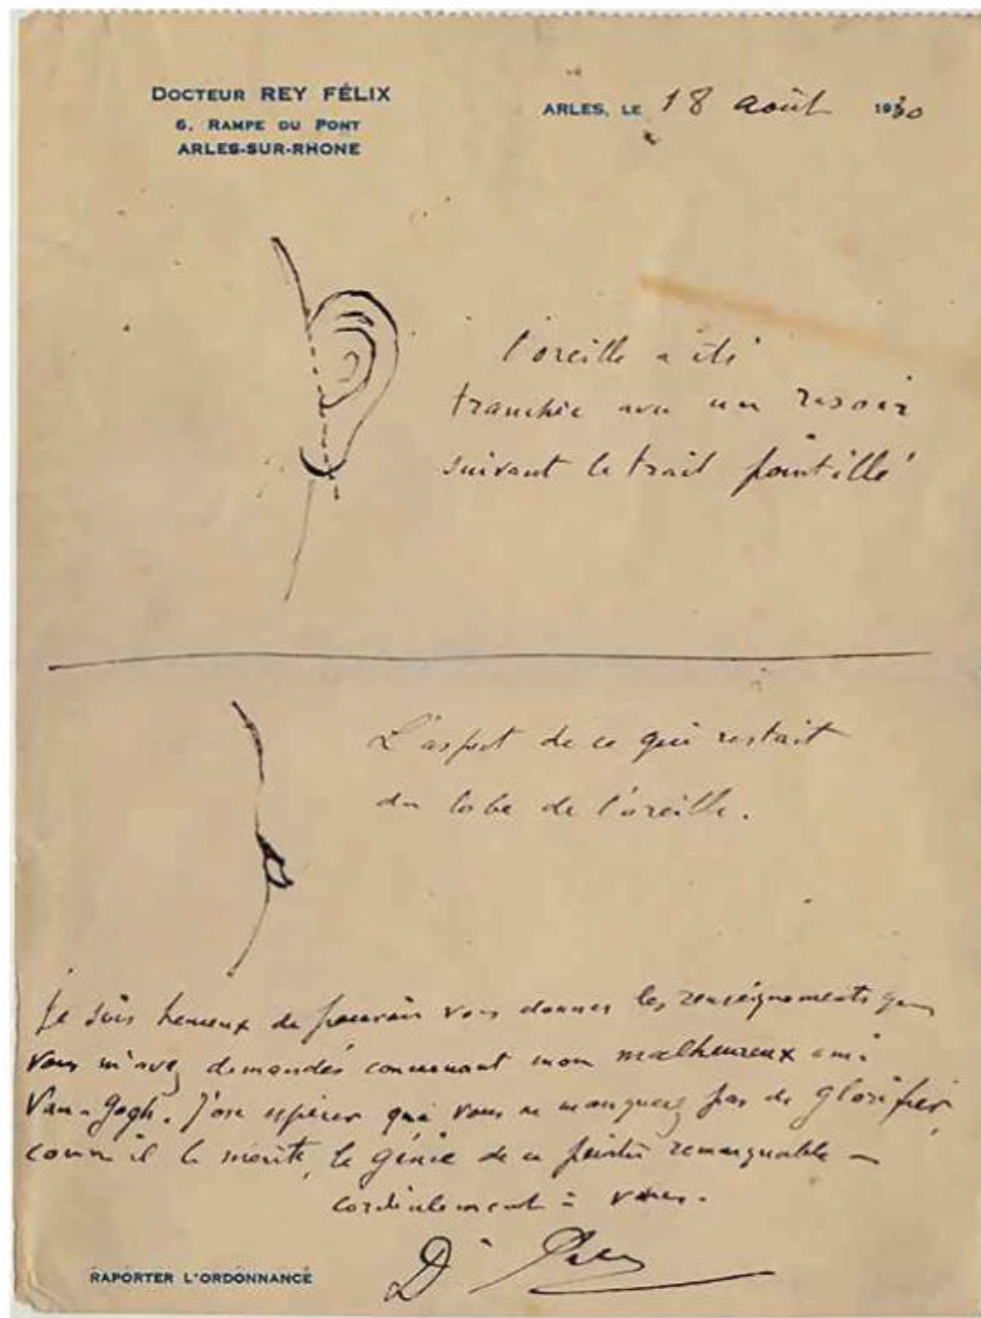 DOCTEUR REY FÉLIX
6, RAMPE DU PONT
ARLES-SUR-RHONE
ARLES, LE 18 août 1930
l'oreille a été
tranchée avec un rasoir
suivant le trait pointillé
L'aspect de ce qui restait
du lobe de l'oreille.
Je suis heureux de pouvoir vous donner les renseignements que
vous m'avez demandés concernant mon malheureux ami
Van-Gogh. J'ose espérer que vous ne manquerez pas de glorifier,
comme il le mérite, le génie de ce peintre remarquable –
cordialement à vous.
Dr Rey
RAPORTER L'ORDONNANCE